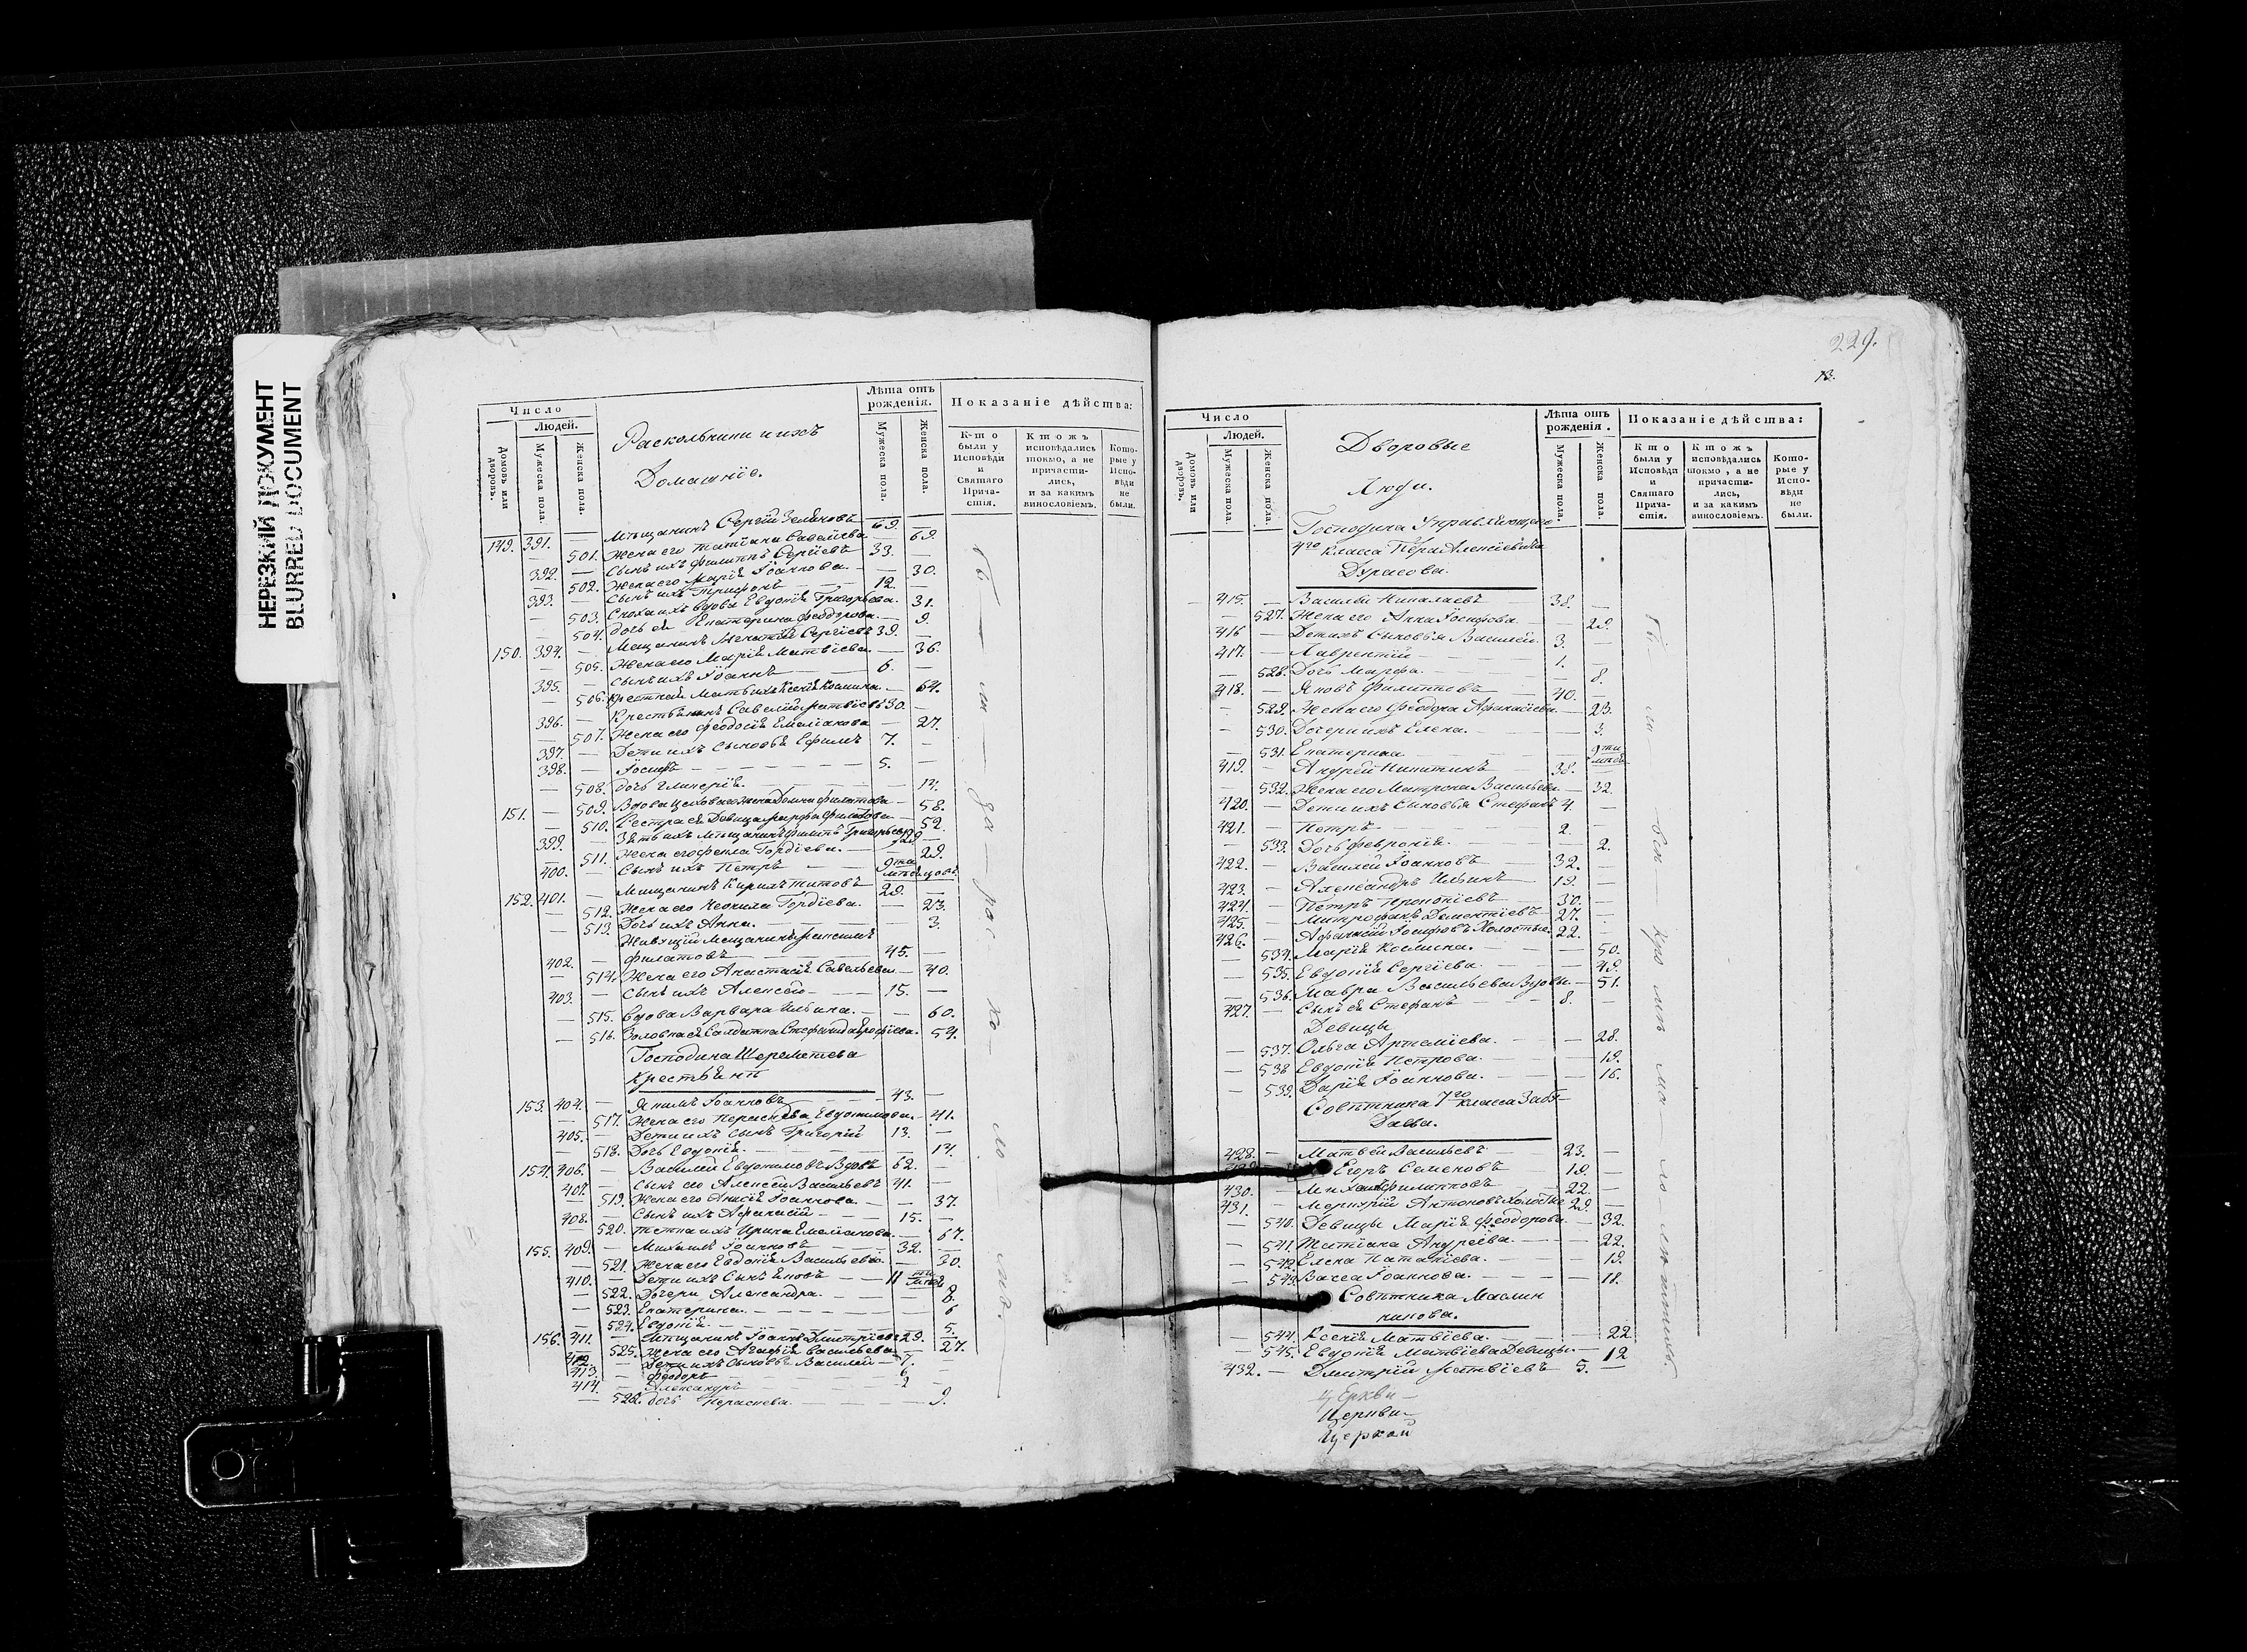 НЕРЕЗКИЙ ДОКУМЕНТ
BLURRED DOCUMENT
Число
Людей.
Домовъ или дворовъ.
Мужеска пола.
Женска пола.
Раскольники и ихъ
Домашніе.
Лѣта отъ рожденія.
Мужеска пола.
Женска пола.
Показаніе дѣйства:
Кто были у Исповѣди и Святаго Причастія.
Ктожъ исповѣдались токмо, а не причастились, и за какимъ винословіемъ.
Которые у Исповѣди не были.
149. 391. — Мѣщанинъ Сергій 69.
— 501. Жена его Татіана Савельева — 69.
392. — Сынъ ихъ Филиппъ Сергіевъ 33. —
— 502. Жена его Марія Іоаннова. — 30.
393. — Сынъ ихъ Трифонъ 12.
— 503. Сноха ихъ вдова Евдокія Григорьева. 31.
— 504. Дочь ея Екатерина Феодорова. — 9.
150. 394. — Мещанинъ Сергіевъ 39. —
505. Жена его Марія Матвіева. — 36.
395. — Сынъ ихъ Іоаннъ 6. —
— 506. Крестная Мать ихъ Ксенія Козмина. — 64.
396. — Крестьянинъ Савелій Матвіевъ 30. —
— 507. Жена его Феодосія Емеліанова — 27.
397. — Дети ихъ Сыновья Ефимъ 7. —
398. — Іосифъ 5. —
— 508. Дочь Гликерія. — 14.
151. — 509. Вдова жена Домна Филатова — 58.
— 510. Сестра ея Девица Марфа 52.
399. — Зять ихъ Мѣщанинъ Филипъ Григорьевъ 29 —
— 511. Жена его Фекла Гордіева. — 29.
400. — Сынъ ихъ Петръ 9ти мѣсяцовъ.
152. 401. — Мищанинъ Кирилъ Титовъ 29. —
— 512. Жена его Неонила Гордіева. — 23.
— 513. Дочь ихъ Анна. — 3.
Живущій Мещанинъ
402. — Филатовъ 45. —
— 514. Жена его Анастасія Савельева — 40.
403. — Сынъ ихъ Алексей 15. —
— 515. Вдова Варвара Ильина. — 60.
— 516. Золовка ея Салдатка Стефанида 54.
Господина Шереметева
Крестьяне
153. 404. — Якимъ Іоанновъ 43. —
— 517. Жена его Параскева Евдокимова. — 41.
405. — Дети ихъ Сынъ Григорій 13. —
— 518. Дочь Евдокія. — 14.
154. 406. — Василей Евдокимовъ Вдовъ 62. —
407. — Сынъ его Алексей Васильевъ 41. —
— 519. Жена его Анисія Іоаннова. — 37.
408. — Сынъ ихъ Афанасій 15. —
— 520. Тетка ихъ Ирина Емеліанова. — 67.
155. 409. — Михаилъ Іоанновъ 32. —
— 521. Жена его Евдокія Васильева. — 30.
410. — Дети ихъ Сынъ Яковъ — 11
— 522. Дочери Александра. 8.
— 523. Екатерина. 6
— 524. Евдокія. 5.
156. 411. — Мѣщанинъ Іоаннъ Дмитріевъ 29. —
— 525. Жена его Агафія Васильева — 27.
412. — Дети ихъ Сыновья Василей — 7. —
413. — Феодоръ 6
414. — Александръ 2
— 526. Дочь Параскева. 9.
229.
13.
Число
Людей.
Домовъ или дворовъ.
Мужеска пола.
Женска пола.
Дворовые
Люди.
Лѣта отъ рожденія.
Мужеска пола.
Женска пола.
Показаніе дѣйства:
Кто были у Исповѣди и Святаго Причастія.
Ктожъ исповѣдались токмо, а не причастились, и за какимъ винословіемъ.
Которые у Исповѣди не были.
Господина Управляющаго
4го класса Петра Алексіевича
Дурасова.
415. — Василій Николаевъ 38. —
— 527. Жена его Анна Іосифова. — 29.
416 — Дети ихъ Сыновья Василей. 3. —
417. — Лаврентій 1. —
528. Дочь Марфа. — 8.
418. — Яковъ Филипповъ 40. —
— 529. Жена его Феодора Афанасіева. — 23.
— 530. Дочери ихъ Елена. — 3.
— 531. Екатерина 9ти
419. — Андрей Никитинъ 38. —
— 532. Жена его Матрона Васильева — 32.
420. — Дети ихъ Сыновья Стефанъ 4. —
421. — Петръ 2. —
— 533. Дочь Февронія. — 2.
422. — Василей Іоанновъ 32. —
423. — Александръ Ильинъ 19. —
424. — Петръ Прокопіевъ 30. —
425. — Митрофанъ Дементіевъ 27. —
426. — Афанасій Іосифовъ Холостые 22. —
— 534. Марія Космина. — 50.
— 535. Евдокія Сергіева. — 49.
— 536. Мавра Васильева Вдовы. — 51.
427. — Сынъ ея Стефанъ 8.
Девицы
— 537. Ольга Артеміева. — 28.
— 538 Евдокія Петрова. — 19.
— 539. Дарія Іоаннова. — 16.
Совѣтника 7го класса
428. — Матвей Васильевъ 23. —
Егоръ Семеновъ 19. —
430. — Филипповъ 22. —
431. — Меркурій Антоновъ Холостые 29. —
— 540. Девицы Марія Феодорова. — 32.
— 541. Татіана Андреева. — 22.
— 542. Елена 19.
— 543. Васса Іоаннова. — 18.
Совѣтника Маслен
никова.
— 544. Ксенія Матвіева. 22
— 545. Евдокія Матвіева Девицы. — 12
432. — Дмитрій Матвіевъ 5. —
Церкви
Церкви
Церкви